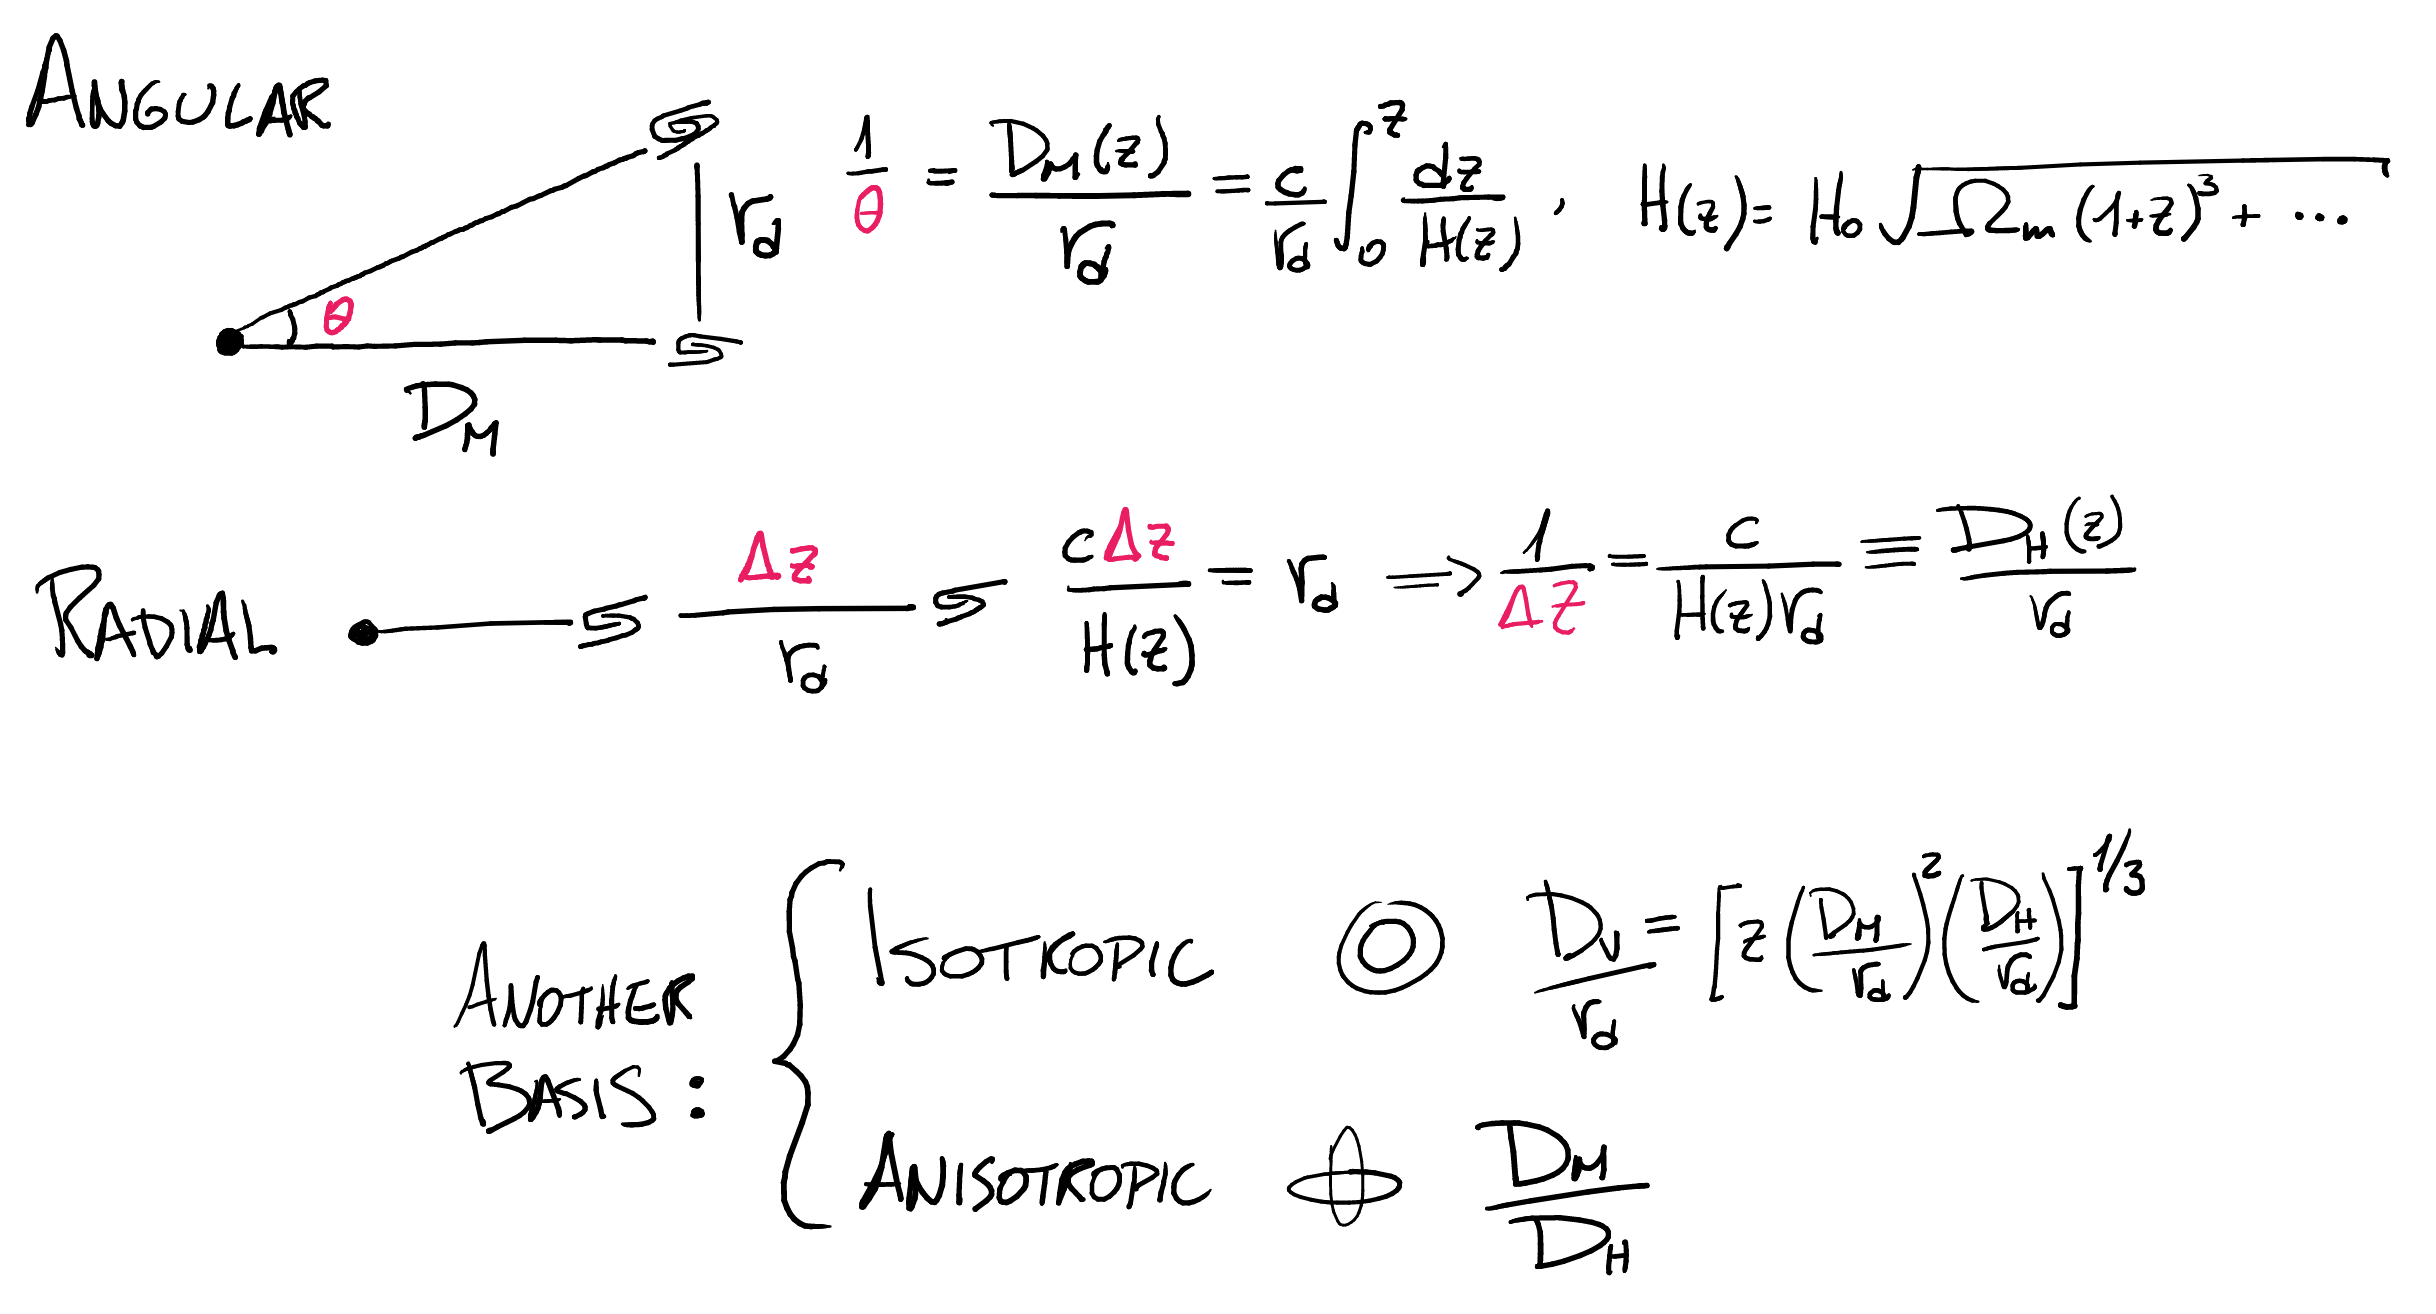 ANGULAR
θ
r_d
D_M
1/θ = D_M(z)/r_d = c/r_d ∫_0^z dz/H(z) , H(z) = H_0 √(Ω_m (1+z)^3 + ...)
RADIAL
Δz
r_d
cΔz/H(z) = r_d ⇒ 1/Δz = c/(H(z) r_d) ≡ D_H(z)/r_d
ANOTHER
BASIS :
ISOTROPIC D_V/r_d = [z (D_M/r_d)^2 (D_H/r_d)]^1/3
ANISOTROPIC D_M/D_H